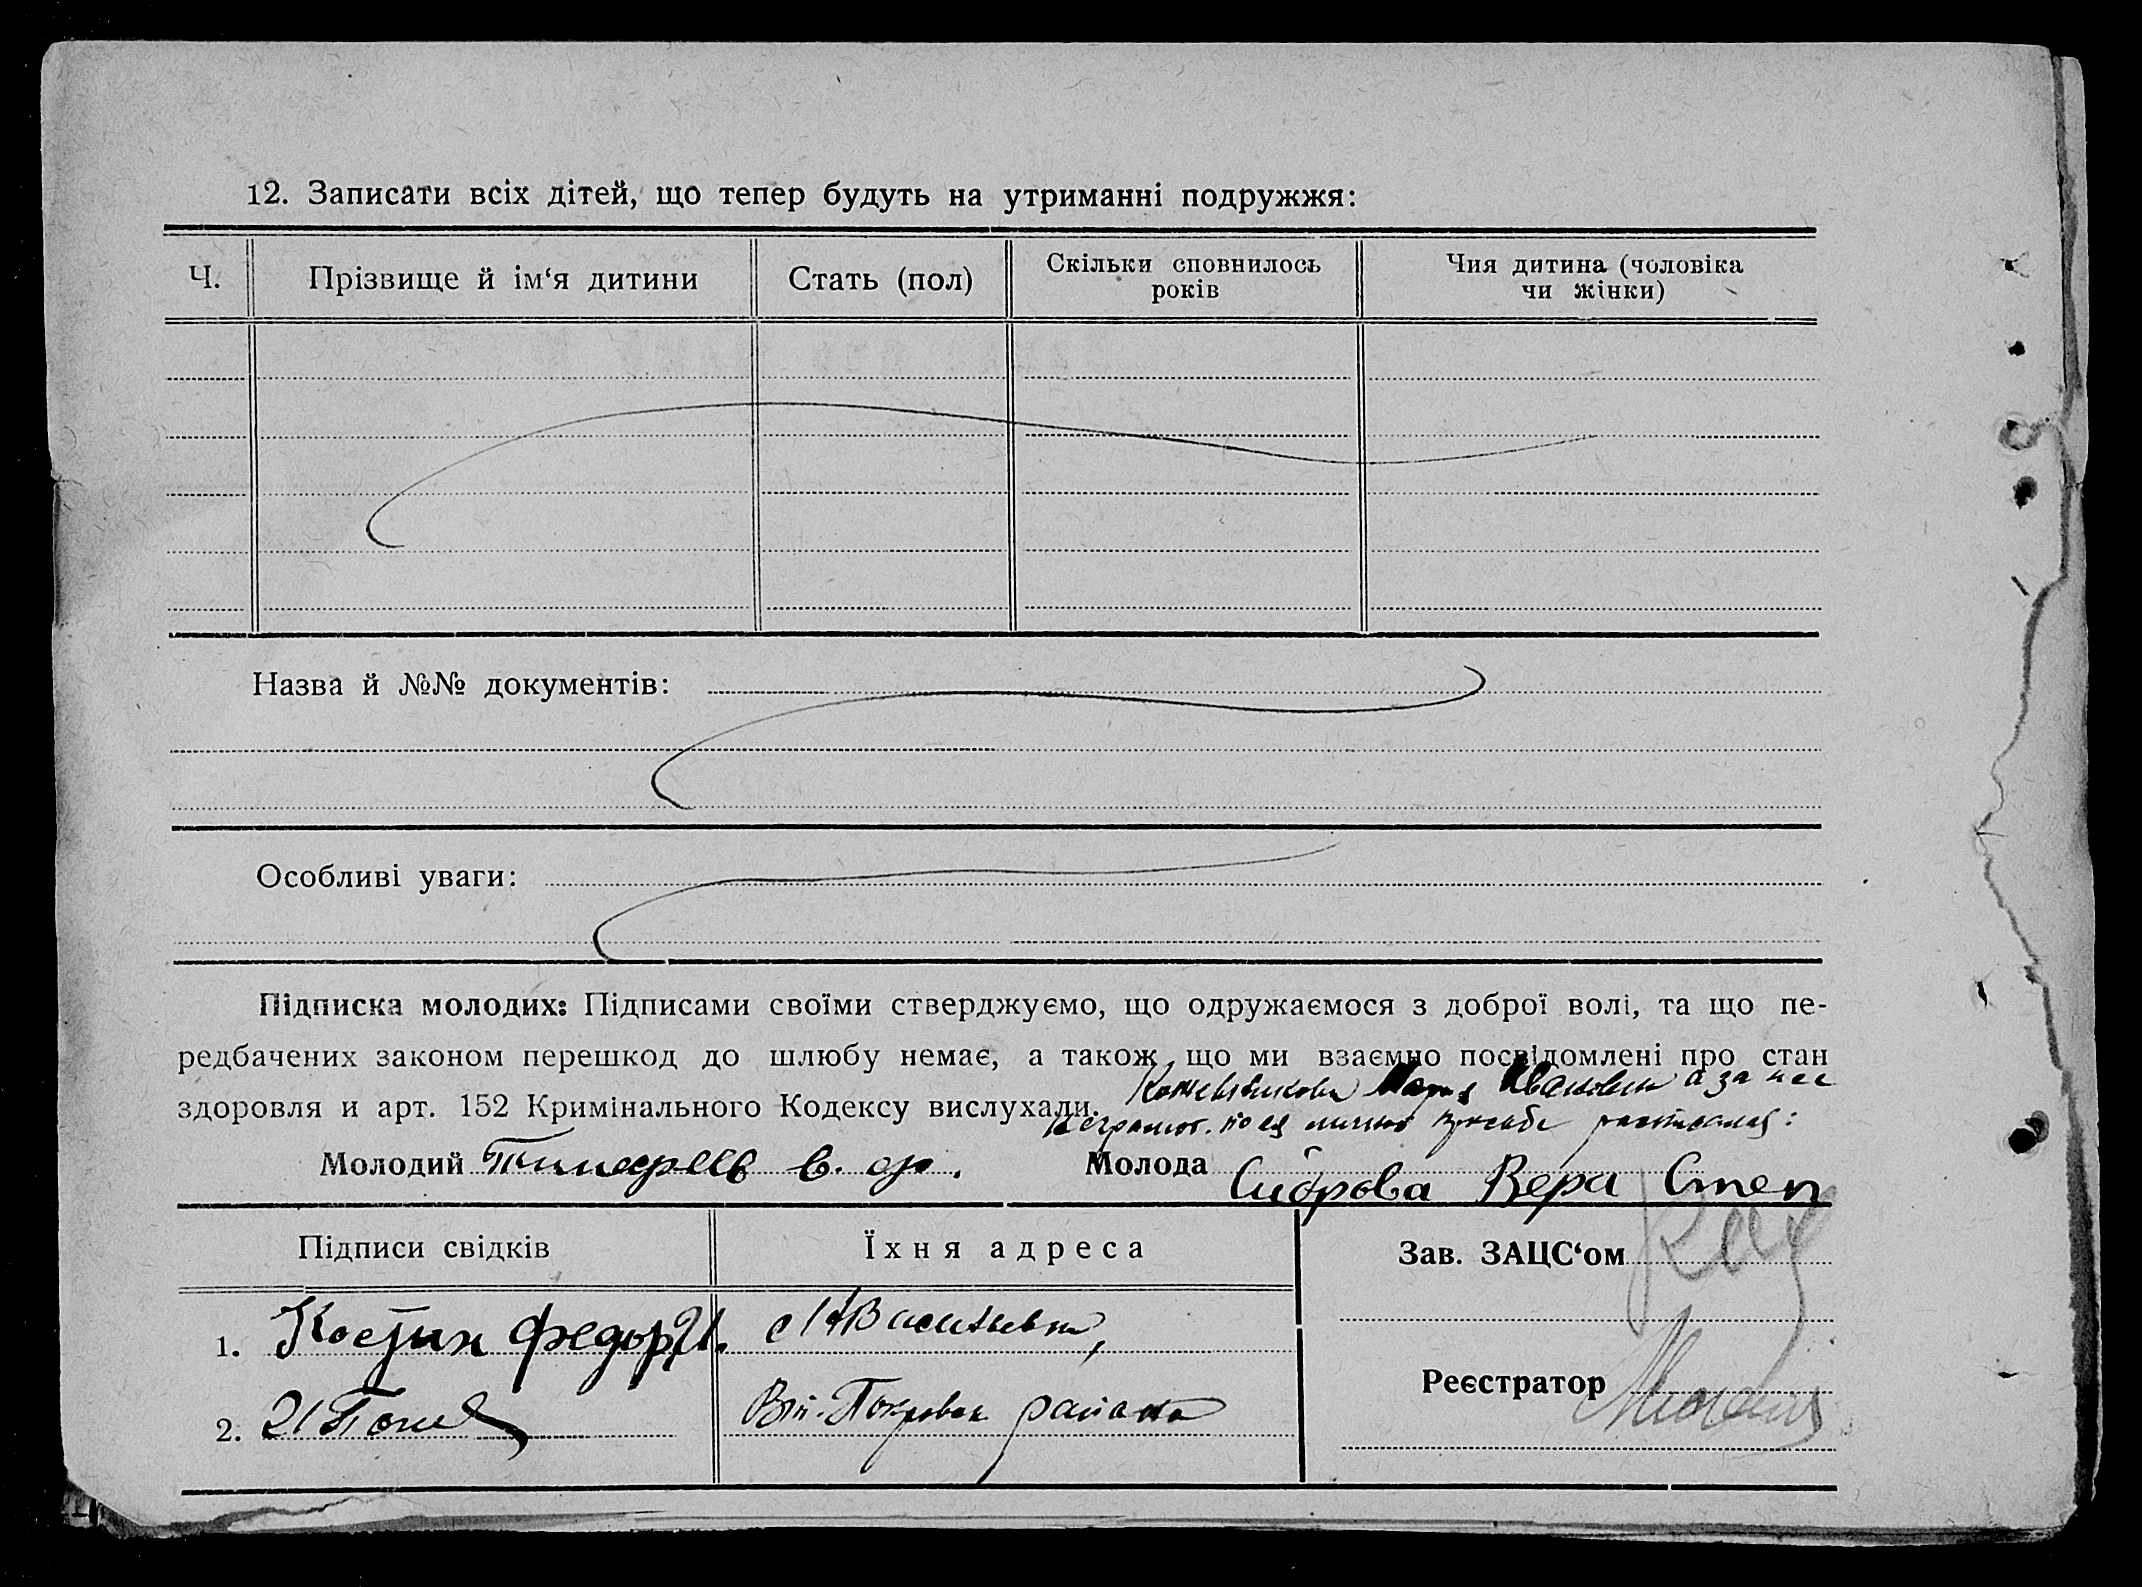 12. Записати всіх дітей, що тепер будуть на утриманні подружжя:
Ч.
Прізвище й ім‘я дитини
Стать (пол)
Скільки сповнилось
років
Чия дитина (чоловіка
чи жінки)
Назва й №№ документів:
Особливі уваги:
Підписка молодих: Підписами своїми стверджуємо, що одружаємося з доброї волі, та що пе-
редбачених законом перешкод до шлюбу немає, а також, що ми взаємно посвідомлені про стан
здоровля и арт. 152 Кримінального Кодексу вислухали.
Кожевникова Мария а за нее
неграмот. по ея личной просьбе расписалась:
Молодий Тимофеев в. ф.
Молода Сидрова Вера Степ
Підписи свідків
Їхня адреса
Зав. ЗАЦС‘ом
1. Костин Федор И.
с Васильевки,
Реєстратор
2.
Вт. Покровск района